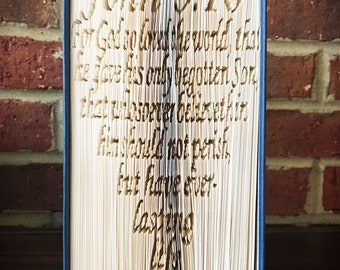 John 3:16
For God so loved the world, that
He gave His only begotten Son,
that whosoever believeth in
Him should not perish,
but have ever-
lasting
life